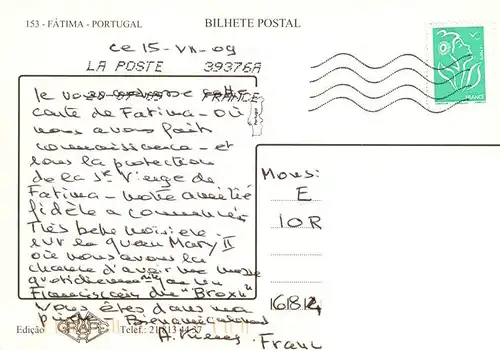 153 - FÁTIMA - PORTUGAL
BILHETE POSTAL
ce 15 - VII - 09
LA POSTE 39376A
FRANCE
Je vous adresse cette
carte de Fatima - où
nous avons fait
connaissance - et
sous la protection
de la Ste Vierge de
Fatima - notre amitié
fidèle a commencé
Très belle croisière
sur le Queen Mary II
où nous avons la
chance d'avoir une messe
quotidienne par un
Franciscain du "Bronx"
Vous êtes dans ma
Monsi
E
IOR
1681
Franc
Edição
Telef.: 21 813 44 37
FRANCE